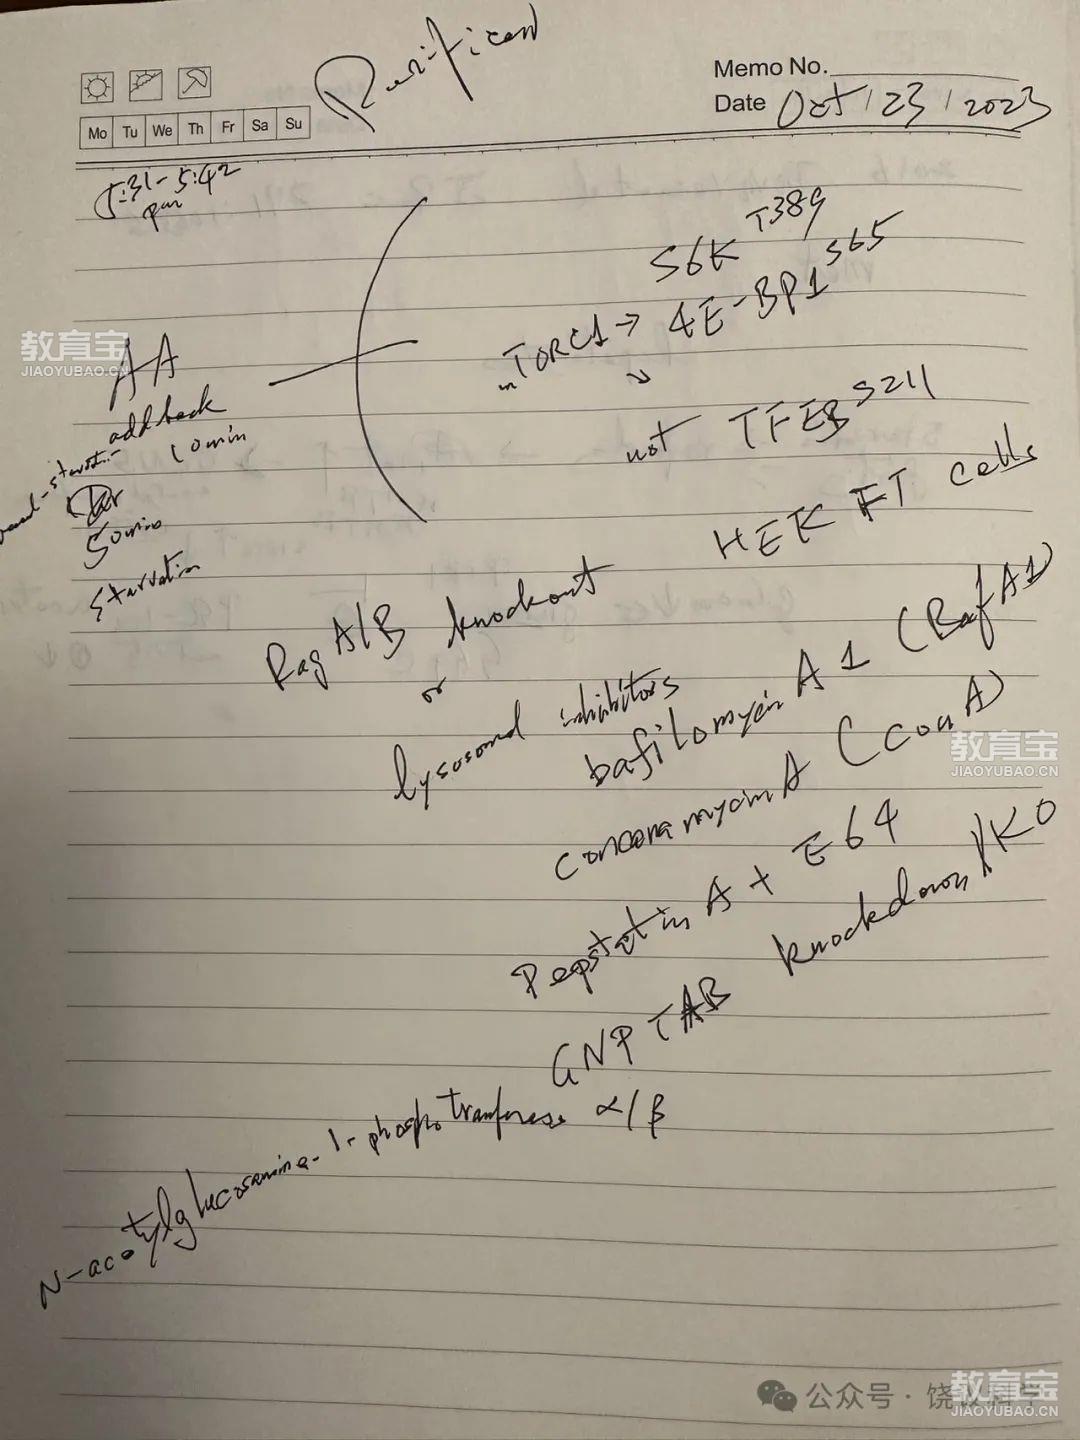 Purification
Memo No.
Date Oct / 23 / 2023
Mo Tu We Th Fr Sa Su
5:31-5:42
pm
S6K T389
mTORC1 → 4E-BP1 S65
not TFEB S211
教育宝
JIAOYUBAO.CN
AA
add back
10 min
50 min
starvation
HEK FT cells
Rag A/B knockout
or
lysosomal inhibitors
bafilomycin A1 (Baf A1)
concanamycin A (con A)
教育宝
JIAOYUBAO.CN
Pepstatin A + E64
GNPTAB knockdown/KO
N-acetylglucosamine-1-phosphotransferase α/β
公众号 · 饶议科学
教育宝
JIAOYUBAO.CN